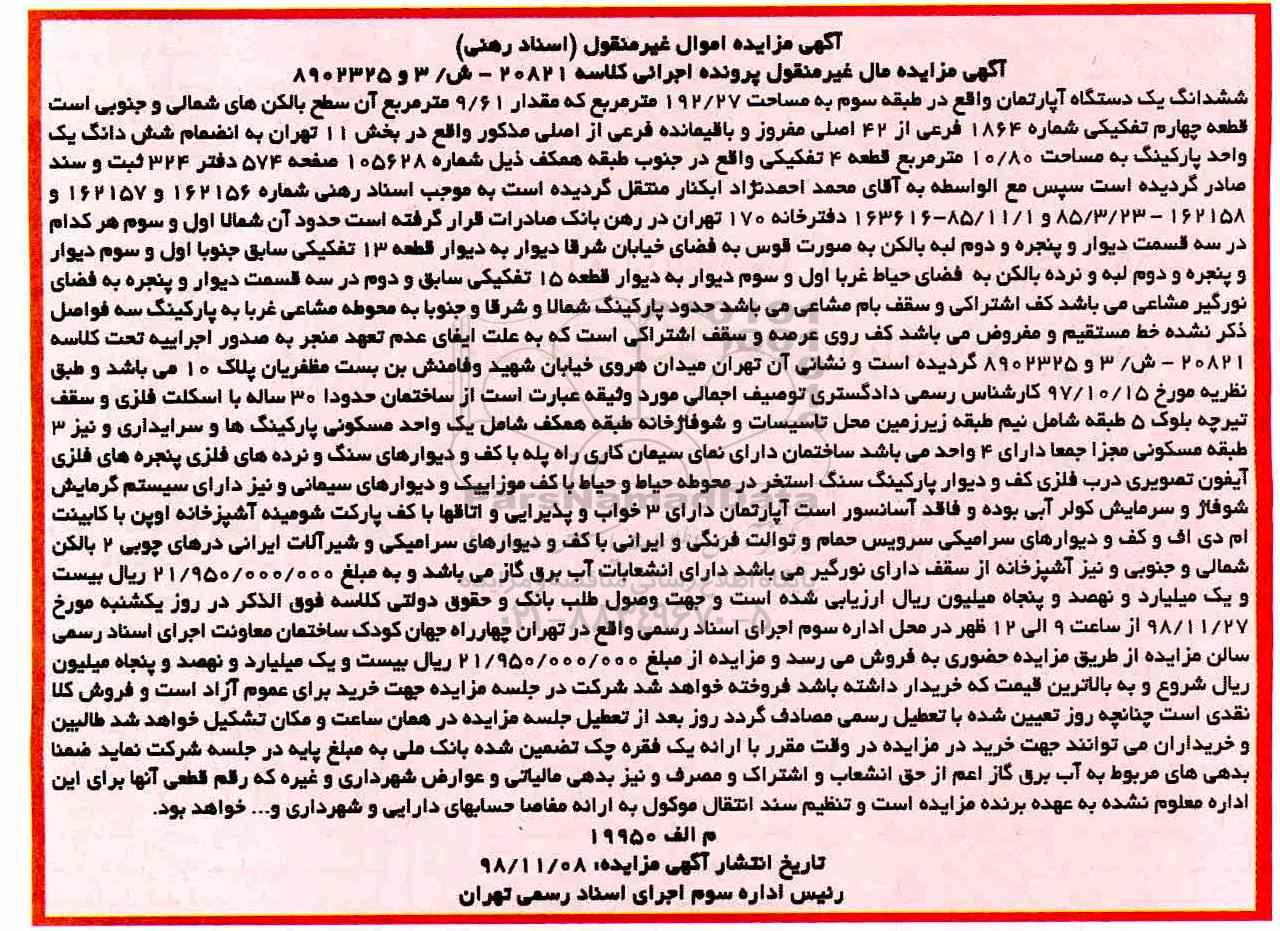 آگهی مزایده اموال غیرمنقول (اسناد رهنی)
آگهی مزایده مال غیرمنقول پرونده اجرائی کلاسه ۲۰۸۲۱ - ش/ ۳ و ۸۹۰۲۳۲۵
ششدانگ یک دستگاه آپارتمان واقع در طبقه سوم به مساحت ۱۹۲/۲۷ مترمربع که مقدار ۹/۶۱ مترمربع آن سطح بالکن های شمالی و جنوبی است
قطعه چهارم تفکیکی شماره ۱۸۶۴ فرعی از ۴۲ اصلی مفروز و باقیمانده فرعی از اصلی مذکور واقع در بخش ۱۱ تهران به انضمام شش دانگ یک
واحد پارکینگ به مساحت ۱۰/۸۰ مترمربع قطعه ۴ تفکیکی واقع در جنوب طبقه همکف ذیل شماره ۱۰۵۶۲۸ صفحه ۵۷۴ دفتر ۳۲۴ ثبت و سند
صادر گردیده است سپس مع الواسطه به آقای محمد احمدنژاد ابکنار منتقل گردیده است به موجب اسناد رهنی شماره ۱۶۲۱۵۶ و ۱۶۲۱۵۷ و
۱۶۲۱۵۸ - ۸۵/۳/۲۳ و ۸۵/۱۱/۱-۱۶۳۶۱۶ دفترخانه ۱۷۰ تهران در رهن بانک صادرات قرار گرفته است حدود آن شمالا اول و سوم هر کدام
در سه قسمت دیوار و پنجره و دوم لبه بالکن به صورت قوس به فضای خیابان شرقا دیوار به دیوار قطعه ۱۳ تفکیکی سابق جنوبا اول و سوم دیوار
و پنجره و دوم لبه و نرده بالکن به فضای حیاط غربا اول و سوم دیوار به دیوار قطعه ۱۵ تفکیکی سابق و دوم در سه قسمت دیوار و پنجره به فضای
نورگیر مشاعی می باشد کف اشتراکی و سقف بام مشاعی می باشد حدود پارکینگ شمالا و شرقا و جنوبا به محوطه مشاعی غربا به پارکینگ سه فواصل
ذکر نشده خط مستقیم و مفروض می باشد کف روی عرصه و سقف اشتراکی است که به علت ایفای عدم تعهد منجر به صدور اجراییه تحت کلاسه
۲۰۸۲۱ - ش/ ۳ و ۸۹۰۲۳۲۵ گردیده است و نشانی آن تهران میدان هروی خیابان شهید وفامنش بن بست مظفریان پلاک ۱۰ می باشد و طبق
نظریه مورخ ۹۷/۱۰/۱۵ کارشناس رسمی دادگستری توصیف اجمالی مورد وثیقه عبارت است از ساختمان حدودا ۳۰ ساله با اسکلت فلزی و سقف
تیرچه بلوک ۵ طبقه شامل نیم طبقه زیرزمین محل تاسیسات و شوفاژخانه طبقه همکف شامل یک واحد مسکونی پارکینگ ها و سرایداری و نیز ۳
طبقه مسکونی مجزا جمعا دارای ۴ واحد می باشد ساختمان دارای نمای سیمان کاری راه پله با کف و دیوارهای سنگ و نرده های فلزی پنجره های فلزی
آیفون تصویری درب فلزی کف و دیوار پارکینگ سنگ استخر در محوطه حیاط و حیاط با کف موزاییک و دیوارهای سیمانی و نیز دارای سیستم گرمایش
شوفاژ و سرمایش کولر آبی بوده و فاقد آسانسور است آپارتمان دارای ۳ خواب و پذیرایی و اتاقها با کف پارکت شومینه آشپزخانه اوپن با کابینت
ام دی اف و کف و دیوارهای سرامیکی سرویس حمام و توالت فرنگی و ایرانی با کف و دیوارهای سرامیکی و شیرآلات ایرانی درهای چوبی ۲ بالکن
شمالی و جنوبی و نیز آشپزخانه از سقف دارای نورگیر می باشد دارای انشعابات آب برق گاز می باشد و به مبلغ ۲۱/۹۵۰/۰۰۰/۰۰۰ ریال بیست
و یک میلیارد و نهصد و پنجاه میلیون ریال ارزیابی شده است و جهت وصول طلب بانک و حقوق دولتی کلاسه فوق الذکر در روز یکشنبه مورخ
۹۸/۱۱/۲۷ از ساعت ۹ الی ۱۲ ظهر در محل اداره سوم اجرای اسناد رسمی واقع در تهران چهارراه جهان کودک ساختمان معاونت اجرای اسناد رسمی
سالن مزایده از طریق مزایده حضوری به فروش می رسد و مزایده از مبلغ ۲۱/۹۵۰/۰۰۰/۰۰۰ ریال بیست و یک میلیارد و نهصد و پنجاه میلیون
ریال شروع و به بالاترین قیمت که خریدار داشته باشد فروخته خواهد شد شرکت در جلسه مزایده جهت خرید برای عموم آزاد است و فروش کلا
نقدی است چنانچه روز تعیین شده با تعطیل رسمی مصادف گردد روز بعد از تعطیل جلسه مزایده در همان ساعت و مکان تشکیل خواهد شد طالبین
و خریداران می توانند جهت خرید در مزایده در وقت مقرر با ارائه یک فقره چک تضمین شده بانک ملی به مبلغ پایه در جلسه شرکت نماید ضمنا
بدهی های مربوط به آب برق گاز اعم از حق انشعاب و اشتراک و مصرف و نیز بدهی مالیاتی و عوارض شهرداری و غیره که رقم قطعی آنها برای این
اداره معلوم نشده به عهده برنده مزایده است و تنظیم سند انتقال موکول به ارائه مفاصا حسابهای دارایی و شهرداری و... خواهد بود.
م الف ۱۹۹۵۰
تاریخ انتشار آگهی مزایده: ۹۸/۱۱/۰۸
رئیس اداره سوم اجرای اسناد رسمی تهران
ParsNamadData
۰۲۱-۸۸۳۴۹۶۷۰-۵